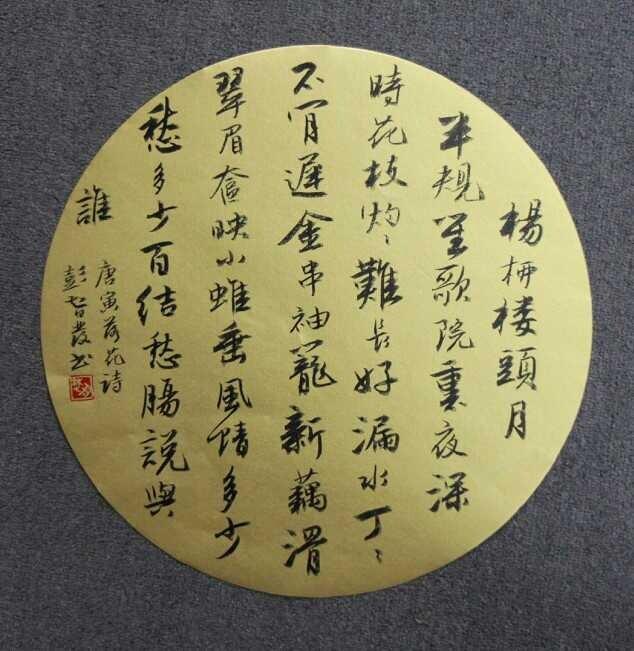 楊柳楼頭月
半規笙歌院裏夜深
時花枝灼〻難長好漏水丁〻
不肯遲金串袖籠新藕滑
翠眉奩映小蛾垂風情多少
愁多少百結愁腸說與
誰
唐寅落花詩
彭智發书